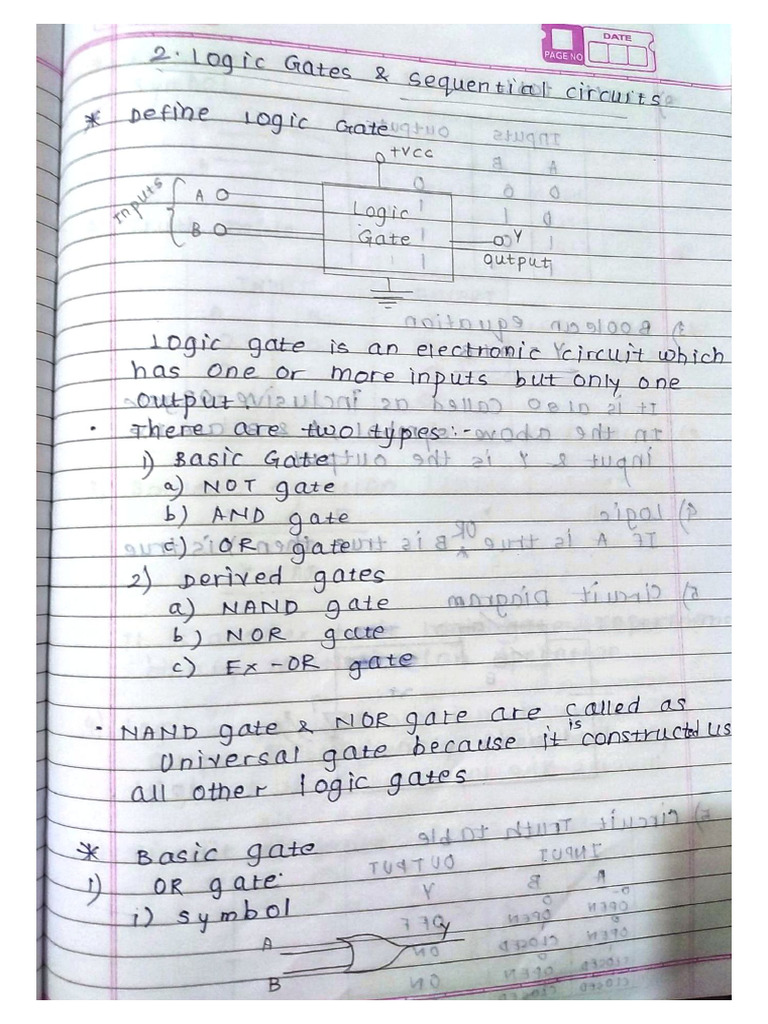 DATE
PAGE NO
2. Logic Gates & sequential circuits
* Define Logic Gate
+VCC
Inputs
A
Logic
B
Gate
Y
output
Logic gate is an electronic circuit which
has one or more inputs but only one
output
• There are two types:-
1) Basic Gate
a) NOT gate
b) AND gate
c) OR gate
2) Derived gates
a) NAND gate
b) NOR gate
c) Ex-OR gate
• NAND gate & NOR gate are called as
Universal gate because it is constructed us
all other logic gates
* Basic gate
1) OR gate
i) symbol
A
y
B